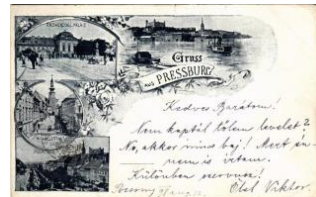 Gruss
aus PRESSBURG
Kedves Barátom!
Nem kaptál tőlem levelet?
No, akkor nincs baj! Mert én
nem is írtam.
Különben szervusz!
Ölel Viktor.
Pozsony